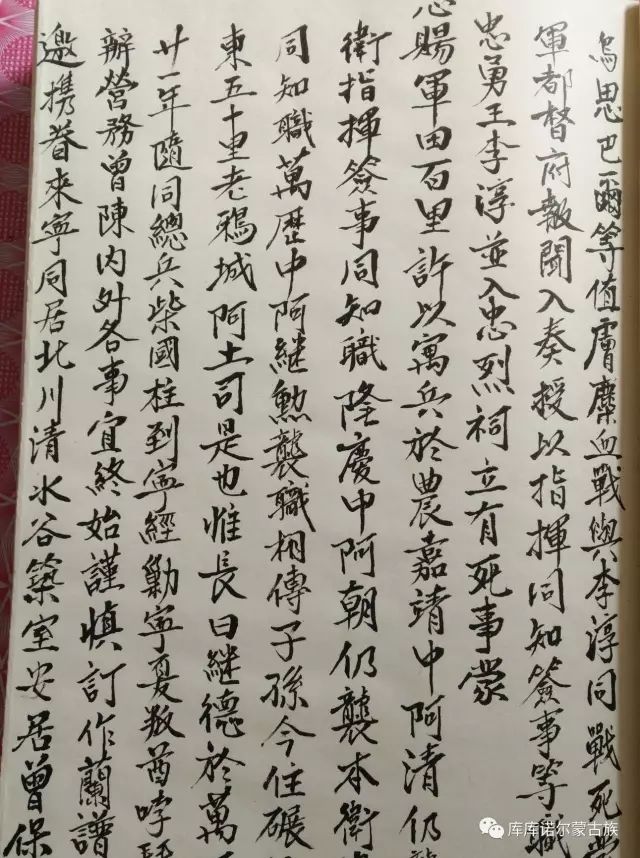 烏思巴爾等值膚麋血戰與李淳同戰死
軍都督府報聞入奏授以指揮同知簽事等職
忠勇王李淳並入忠烈祠立有死事蒙
心賜軍田百里許以寓兵於農嘉靖中阿清仍
衛指揮簽事同知職隆慶中阿朝仍襲本衛
同知職萬歷中阿継勲襲職相傳子孫今住碾
東五十里老鴉城阿土司是也惟長曰継德於萬
廿一年隨同總兵柴國柱到寧經勦寧夏叛酋哱
辦營務曾陳內外各事宜終始謹慎訂作蘭譜
邀携眷來寧同居北川清水谷築室安居曾保
库库诺尔蒙古族